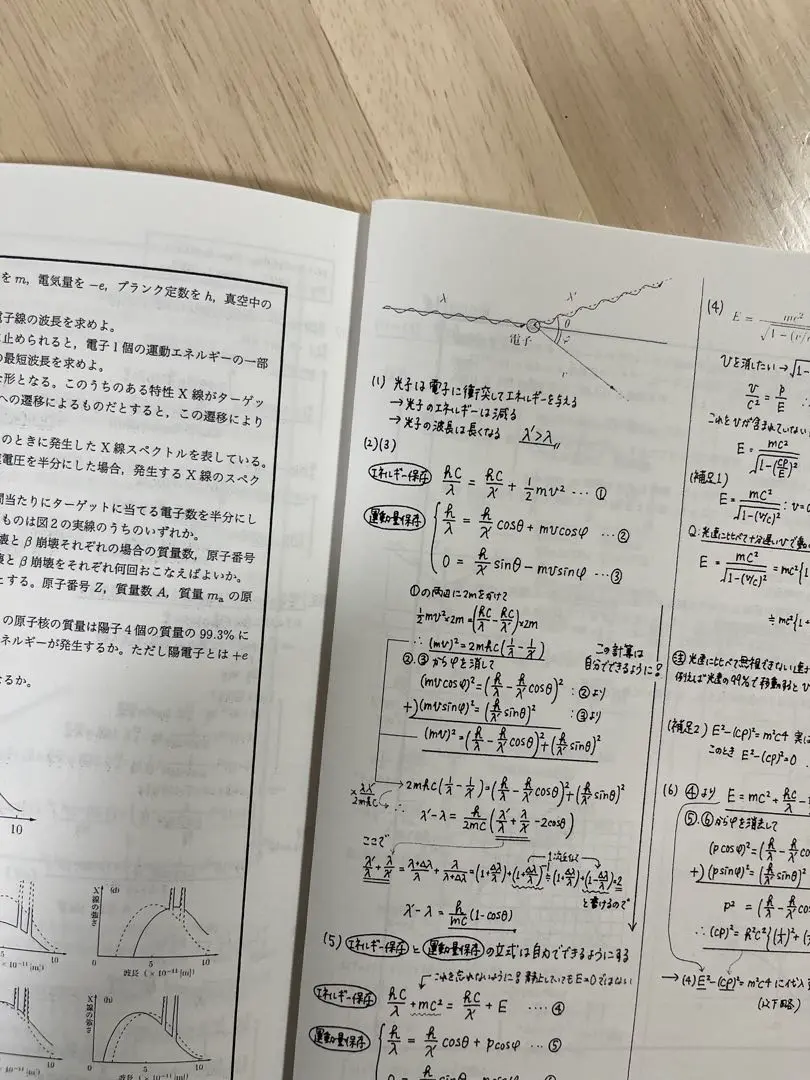 を m, 電気量を −e, プランク定数を h, 真空中の
子線の波長を求めよ。
止められると, 電子1個の運動エネルギーの一部
の最短波長を求めよ。
な形となる。このうちのある特性X線がターゲッ
への遷移によるものだとすると, この遷移により
のときに発生したX線スペクトルを表している。
電圧を半分にした場合, 発生するX線のスペク
間当たりにターゲットに当てる電子数を半分にし
ものは図2の実線のうちのいずれか。
壊と β 崩壊それぞれの場合の質量数, 原子番号
壊と β 崩壊をそれぞれ何回おこなえばよいか。
とする。原子番号 Z, 質量数 A, 質量 ma の原
の原子核の質量は陽子4個の質量の 99.3% に
ネルギーが発生するか。ただし陽電子とは +e
なるか。
10
X線の強さ
(d)
0 5 10
波長 (×10⁻¹¹ [m])
10
×10⁻¹¹ [m])
X線の強さ
(h)
0 5 10
波長 (×10⁻¹¹ [m])
10
(×10⁻¹¹ [m])
λ
λ'
θ
φ
電子
(1) 光子は電子に衝突してエネルギーを与える
→光子のエネルギーは減る
→光子の波長は長くなる λ'>λ
(2)(3)
エネルギー保存 hc/λ = hc/λ' + 1/2 mv² … ①
運動量保存 h/λ = h/λ' cosθ + mvcosφ … ②
0 = h/λ' sinθ − mvsinφ … ③
①の両辺に2mをかけて
1/2 mv²×2m = (hc/λ − hc/λ')×2m
∴ (mv)² = 2mhc(1/λ − 1/λ')
この計算は
自分でできるように!
②,③からφを消して
(mvcosφ)² = (h/λ − h/λ' cosθ)² : ②より
+) (mvsinφ)² = (h/λ' sinθ)² : ③より
(mv)² = (h/λ − h/λ' cosθ)² + (h/λ' sinθ)²
×λλ'/2mhc
2mhc(1/λ − 1/λ') = (h/λ − h/λ' cosθ)² + (h/λ' sinθ)²
∴ λ' − λ = h/2mc (λ'/λ + λ/λ' − 2cosθ)
ここで
λ'/λ + λ/λ' = λ+Δλ/λ + λ/λ+Δλ = (1+Δλ/λ) + (1+Δλ/λ)⁻¹ ≒ (1+Δλ/λ) + (1−Δλ/λ) = 2
と書けるので
λ' − λ = h/mc (1−cosθ)
(5) エネルギー保存 と 運動量保存 の立式は自力でできるようにする
これを忘れないように! 静止していてもE=0ではない
エネルギー保存 hc/λ + mc² = hc/λ' + E … ④
運動量保存 h/λ = h/λ' cosθ + pcosφ … ⑤
(4) E = mc²/√1−(v/c)
vを消したい→
v/c² = p/E
これをvが含まれていない
E = mc²/√1−(cp/E)²
(補足1)
E = mc²/√1−(v/c)² : v=0
E = mc²/√1−(v/c)² = mc²{1
≒ mc²{1+
(補足2) E²−(cp)² = m²c⁴
このとき E²−(cp)² = 0
(6) ④より E = mc² + hc/λ −
⑤,⑥からφを消去して
(pcosφ)² = (h/λ − h/λ' co
+) (psinφ)² = (h/λ' sinθ)²
p² = (h/λ − h/λ' c
∴ (cp)² = h²c²{(1/λ)² + (
→(4) E²−(cp)² = m²c⁴ に代入
(以下略)